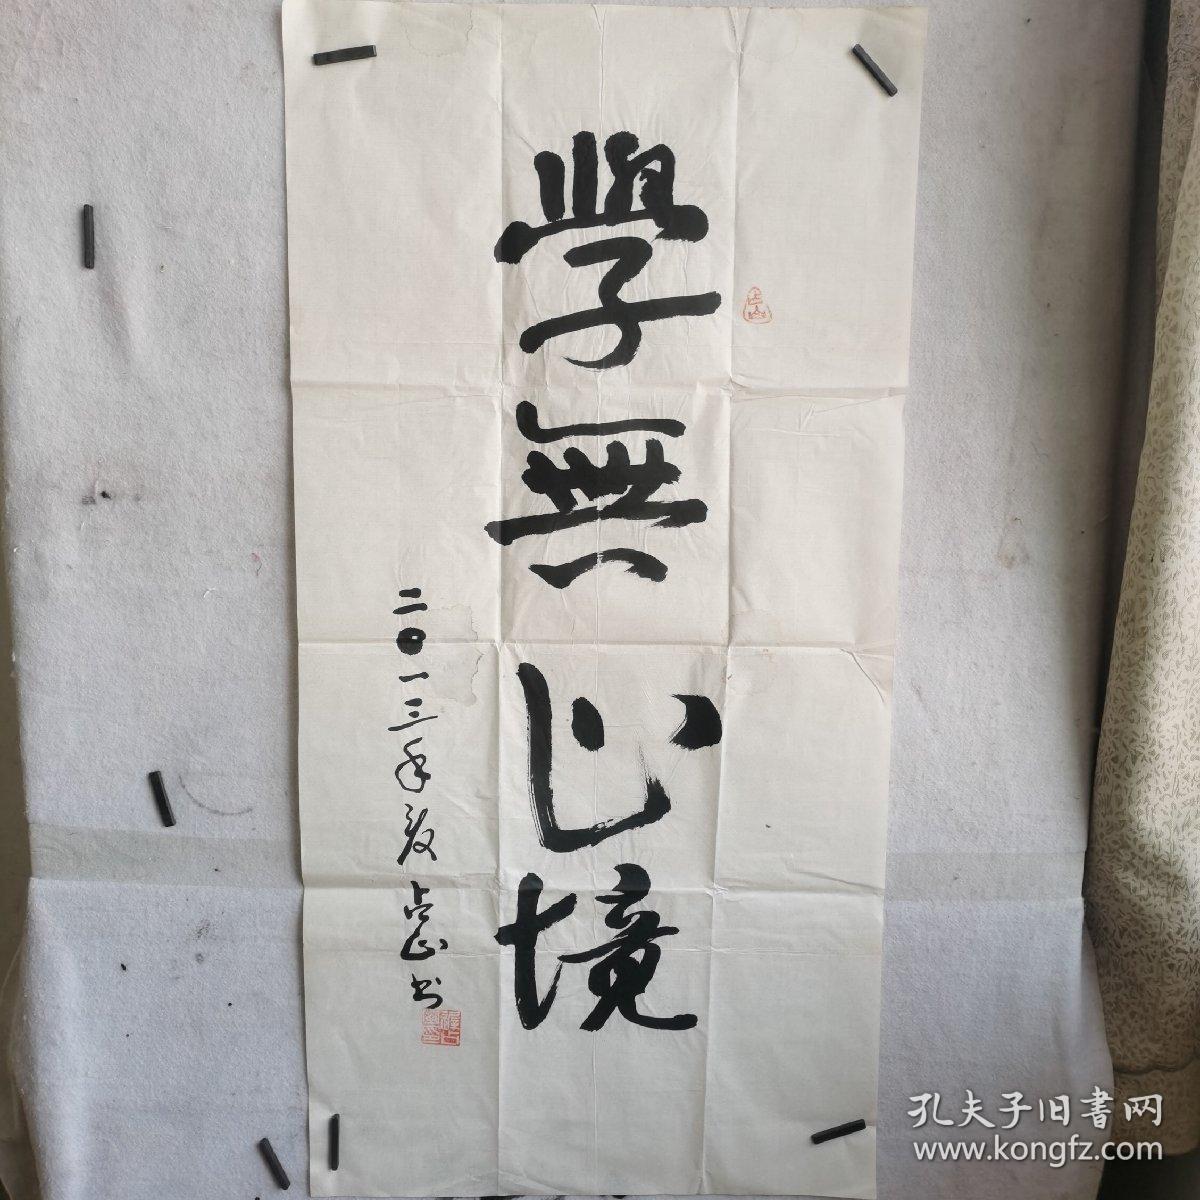 學無止境
二〇一三年夏 占山书
占山
孔夫子旧書网
www.kongfz.com